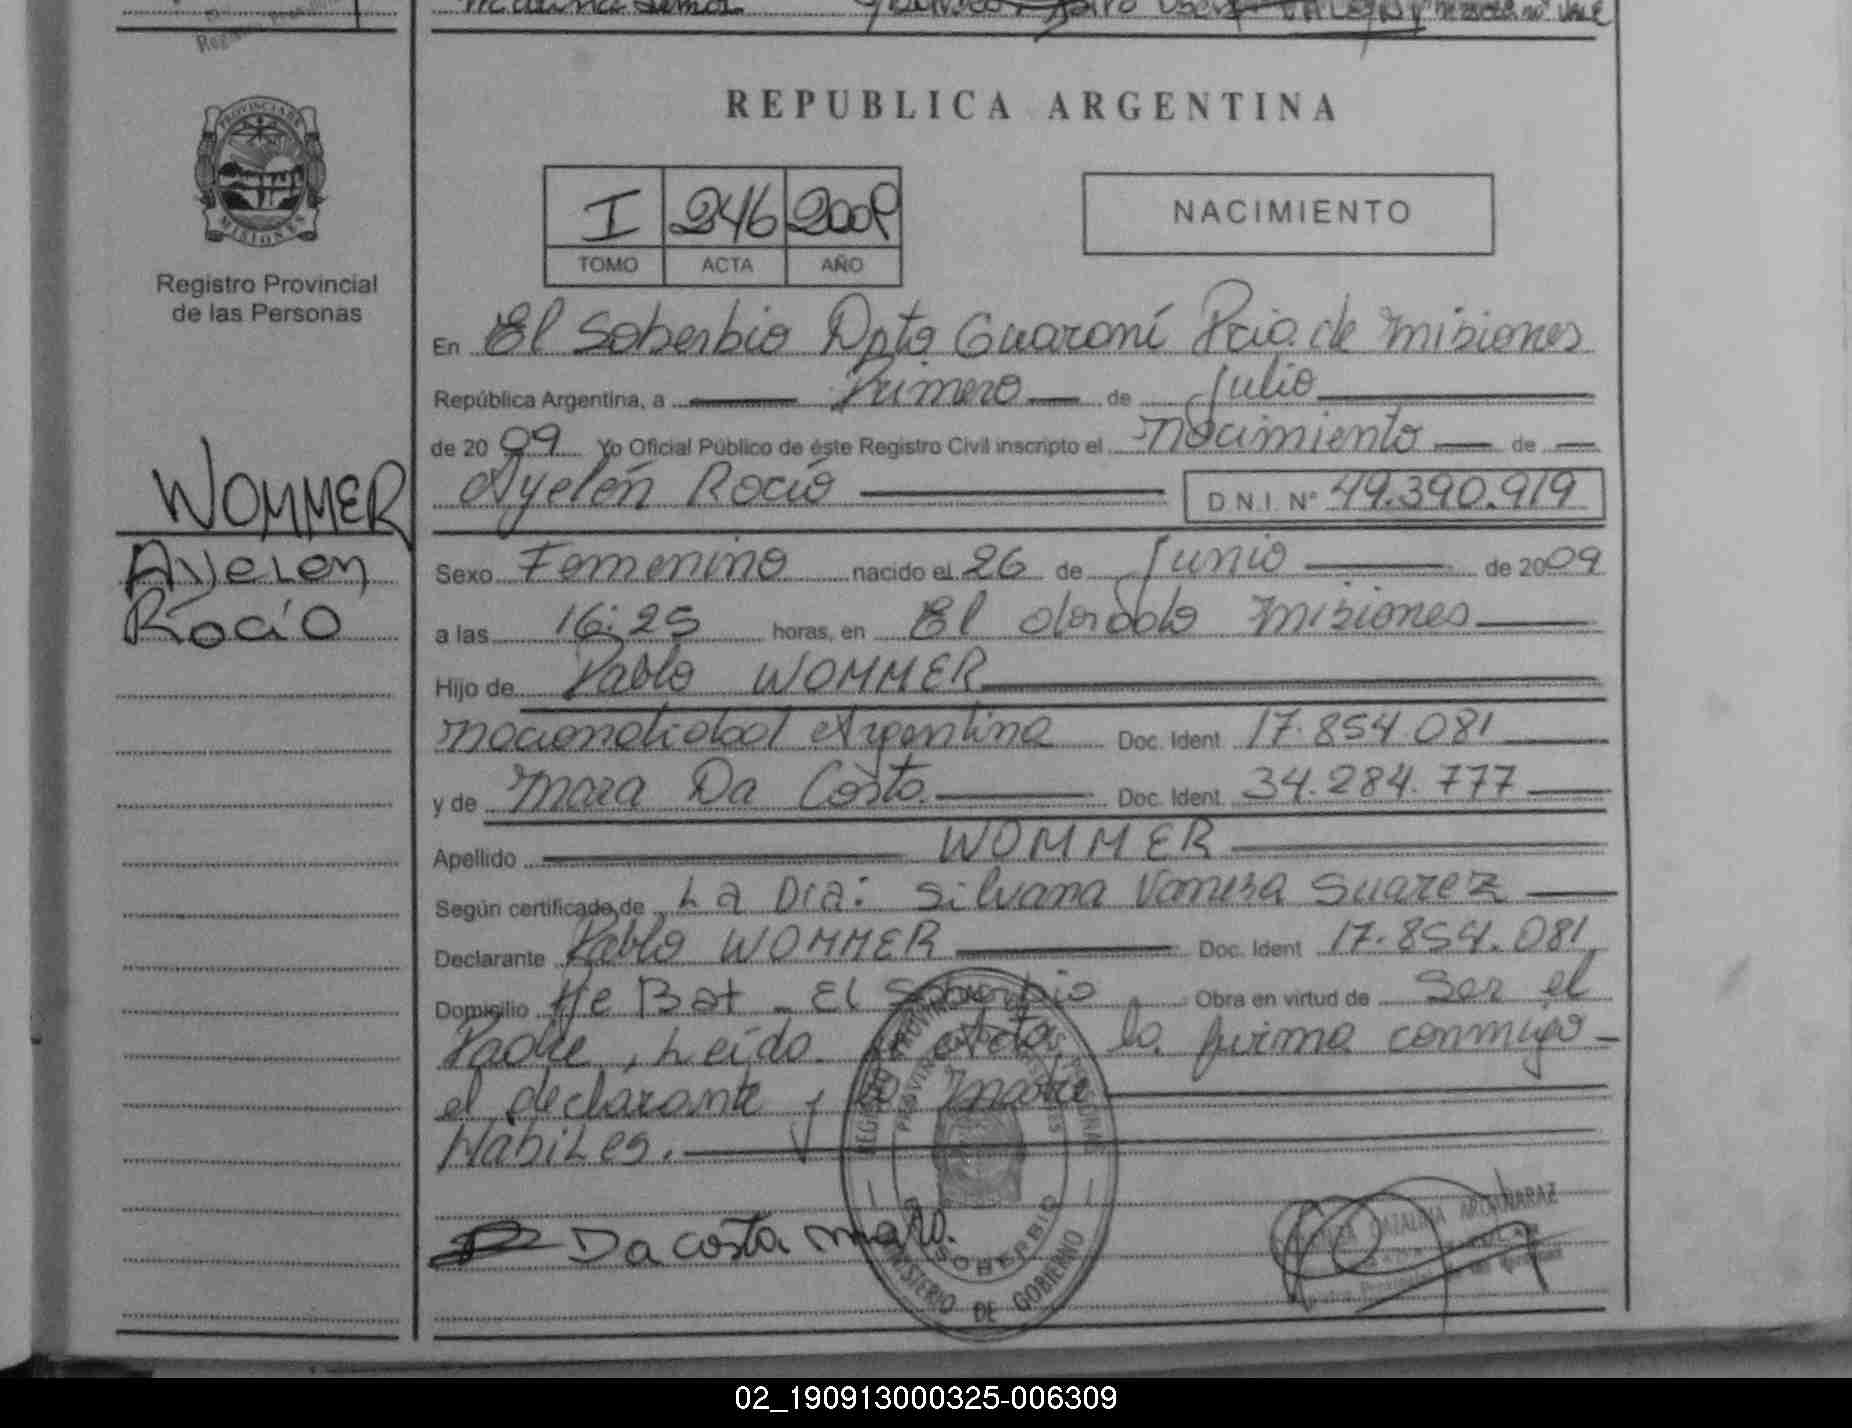 REPUBLICA ARGENTINA
PROVINCIA DE
MISIONES
Registro Provincial
de las Personas
I 246 2009
TOMO ACTA AÑO
NACIMIENTO
En El Soberbio Dpto Guaraní Pcia. de Misiones
República Argentina, a Primero de Julio
de 2009 Yo Oficial Público de éste Registro Civil inscripto el Nacimiento de
Ayelén Rocío D.N.I. Nº 49.390.919
WOMMER
Ayelen
Rocío
Sexo Femenino nacido el 26 de Junio de 2009
a las 16:25 horas, en El dorado Misiones
Hijo de Pablo WOMMER
nacionalidad Argentina Doc. Ident. 17.854.081
y de Mara Da Costa. Doc. Ident. 34.284.777
Apellido WOMMER
Según certificado de La Dra: Silvana Vanesa Suarez
Declarante Pablo WOMMER Doc. Ident 17.854.081
Domicilio El Soberbio Obra en virtud de Ser el
Padre, Leída la firma conmigo
el declarante y la madre
Habiles.
Da costa mara.
SOBERBIO
MINISTERIO DE GOBIERNO
02_190913000325-006309